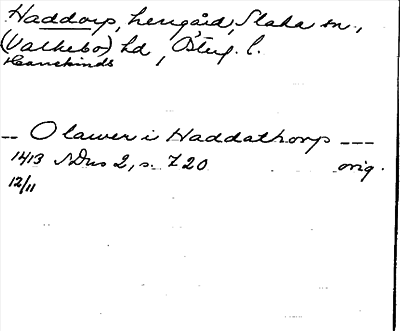 Haddorp, herrgård, Slaka sn.,
(Valkebo) hd, Östg. l.
Hanekinds
-- Olawer i Haddathorp ---
1413 NDns 2, s. 720 orig.
12/11